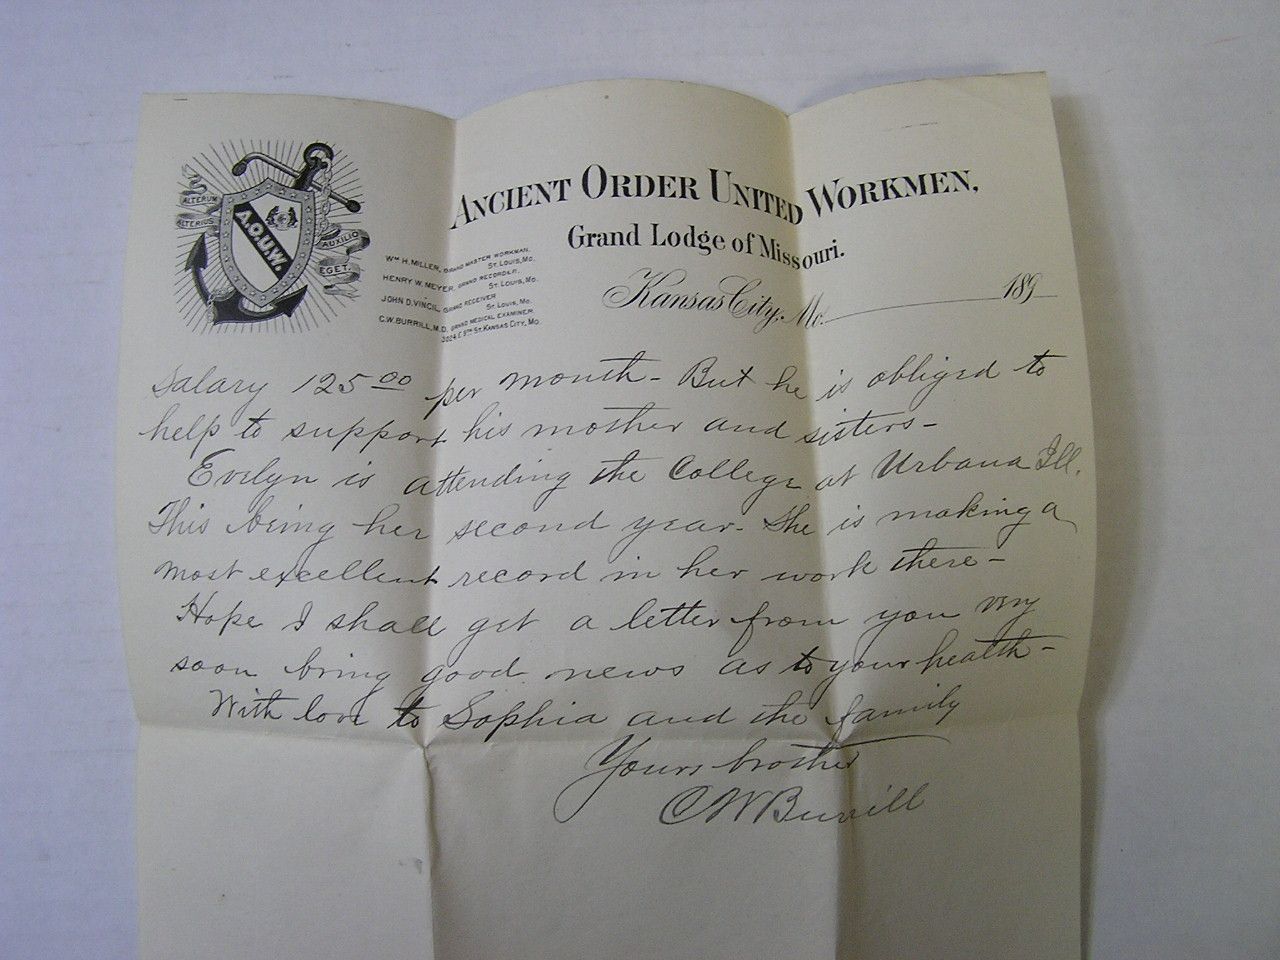 ALTERUM
ALTERIUS
AUXILIO
EGET.
A.O.U.W.
ANCIENT ORDER UNITED WORKMEN,
Grand Lodge of Missouri.
WM H. MILLER, GRAND MASTER WORKMAN,
ST. LOUIS, MO.
HENRY W. MEYER, GRAND RECORDER,
ST. LOUIS, MO.
JOHN D. VINCIL, GRAND RECEIVER
ST. LOUIS, MO.
C.W. BURRILL, M.D. GRAND MEDICAL EXAMINER
3024 E 9TH ST. KANSAS CITY, MO.
Kansas City, Mo. 189
salary 125 00 per month - But he is obliged to
help to support his mother and sisters -
Evelyn is attending the College at Urbana Ill.
This being her second year - She is making a
most excellent record in her work there -
Hope I shall get a letter from you very
soon bring good news as to your health -
With love to Sophia and the family
Yours brother
C W Burrill